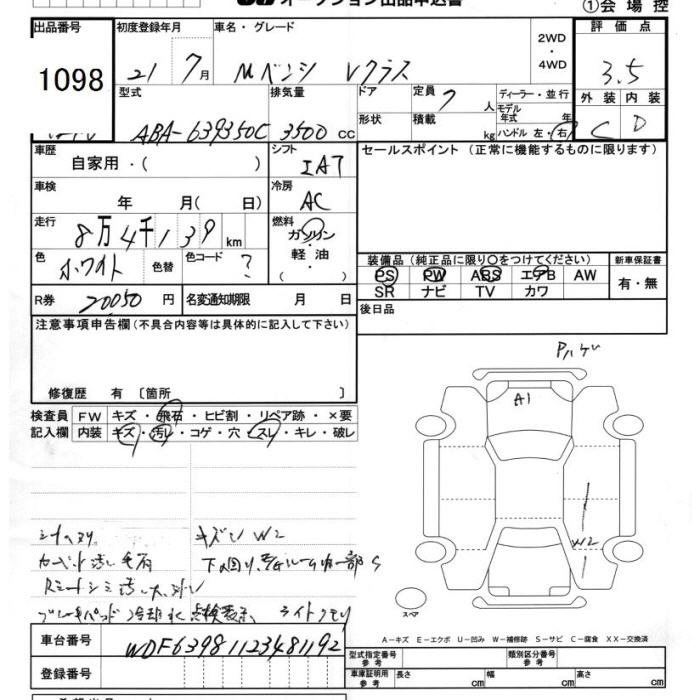 オークション出品申込書
①会場控
出品番号 初度登録年月 車名・グレード 評価点
1098 21 7月 Mベンツ Vクラス 2WD・4WD 3.5
型式 排気量 ドア 定員 7人 ディーラー・並行 外装 内装
ABA-639350C 3500cc 形状 積載 kg モデル年式 年 ハンドル 左・右 C D
車歴 自家用・( ) シフト IAT セールスポイント(正常に機能するものに限ります)
車検 年 月(日) 冷房 AC
走行 8万4千139km 燃料 ガソリン・軽油・( )
色 ホワイト 色替 色コード ?
装備品(純正品に限り○をつけてください) 新車保証書
PS PW ABS エアB AW 有・無
SR ナビ TV カワ
R券 20050円 名変通知期限 月 日
後日品
注意事項申告欄(不具合内容等は具体的に記入して下さい)
Pハゲ
修復歴 有〔箇所 〕
A1
検査員 FW キズ・飛石・ヒビ割・リペア跡・×要
記入欄 内装 キズ・汚レ・コゲ・穴・スレ・キレ・破レ
W2
シートヘタリ キズ W2
スペア
A-キズ E-エクボ U-凹み W-補修跡 S-サビ C-腐食 XX-交換済
車台番号 WDF63981123481192
型式指定番号 参考 類別区分番号 参考
登録番号 車庫証明用 参考 長さ cm 幅 cm 高さ cm